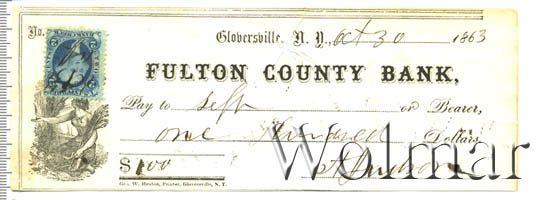 No.
Gloversville, N. Y., Oct 30 1863
FULTON COUNTY BANK,
Pay to Self or Bearer,
one Hundred Dollars
$100
Wolmar
Geo. W. Heaton, Printer, Gloversville, N. Y.